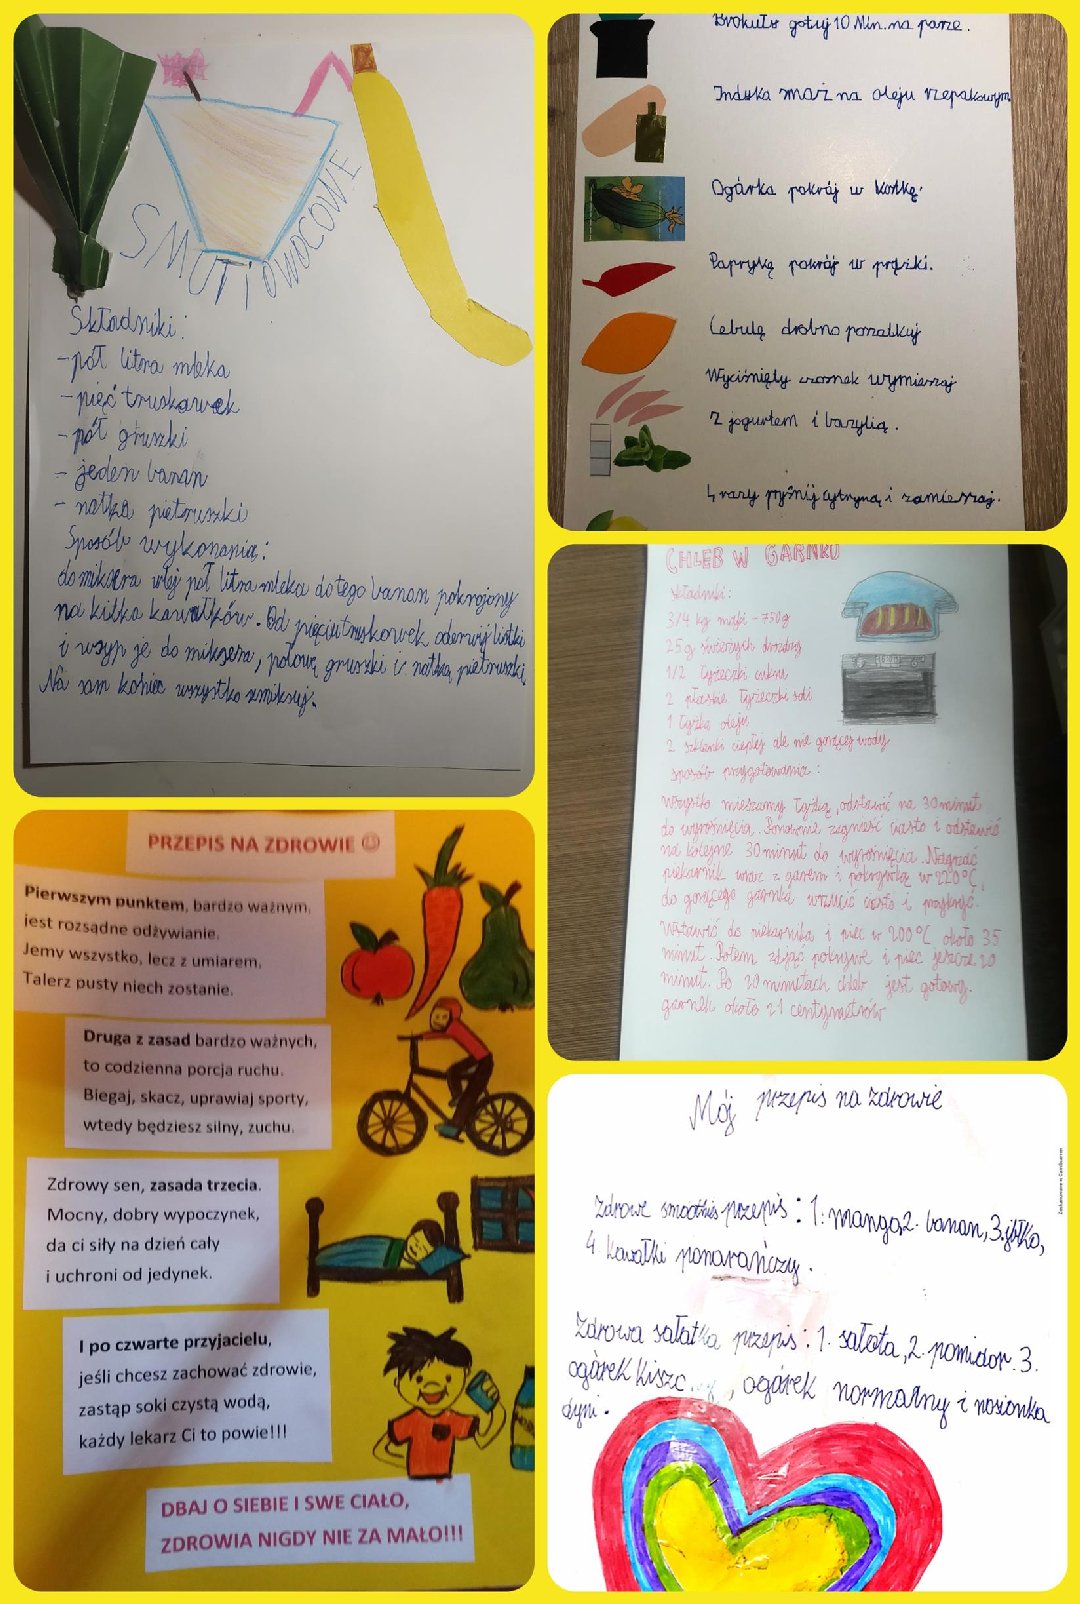 SMUTI OWOCOWE
Składniki:
- pół litra mleka
- pięć truskawek
- pół gruszki
- jeden banan
- natka pietruszki
Sposób wykonania:
do miksera wlej pół litra mleka do tego banan pokrojony
na kilka kawałków. Od pięciu truskawek oderwij listki
i wsyp je do miksera, połowę gruszki i natkę pietruszki
Na sam koniec wszystko zmiksuj.
Brokuło gotuj 10 Min. na parze.
Indyka smaż na oleju rzepakowym
Ogórka pokrój w kostkę.
Paprykę pokrój w prążki.
Cebulę drobno poszatkuj
Wyciśnięty czosnek wymieszaj
z jogurtem i bazylią.
4 razy pryśnij cytryną i zamieszaj.
CHLEB W GARNKU
składniki:
3/4 kg mąki - 750g
25g świeżych drożdży
1/2 łyżeczki cukru
2 płaskie łyżeczki soli
1 łyżka oleju
2 szklanki ciepłej ale nie gorącej wody
sposób przygotowania:
Wszystko mieszamy łyżką, odstawić na 30 minut
do wyrośnięcia. Ponownie zagnieść ciasto i odstawić
na kolejne 30 minut do wyrośnięcia. Nagrzać
piekarnik wraz z garem i pokrywką w 220°C,
do gorącego garnka wrzucić ciasto i przykryć.
Wstawić do piekarnika i piec w 200°C około 35
minut. Potem zdjąć pokrywę i piec jeszcze 20
minut. Po 20 minutach chleb jest gotowy.
garnek około 21 centymetrów
PRZEPIS NA ZDROWIE ☺
Pierwszym punktem, bardzo ważnym,
jest rozsądne odżywianie.
Jemy wszystko, lecz z umiarem,
Talerz pusty niech zostanie.
Druga z zasad bardzo ważnych,
to codzienna porcja ruchu.
Biegaj, skacz, uprawiaj sporty,
wtedy będziesz silny, zuchu.
Zdrowy sen, zasada trzecia.
Mocny, dobry wypoczynek,
da ci siły na dzień cały
i uchroni od jedynek.
I po czwarte przyjacielu,
jeśli chcesz zachować zdrowie,
zastąp soki czystą wodą,
każdy lekarz Ci to powie!!!
DBAJ O SIEBIE I SWE CIAŁO,
ZDROWIA NIGDY NIE ZA MAŁO!!!
Mój przepis na zdrowie
Zdrowe smoothis przepis: 1. manga, 2. banan, 3. jabłko,
4. kawałki pomarańczy.
Zdrowa sałatka przepis: 1. sałata, 2. pomidor 3.
ogórek kiszc , ogórek normalny i nasionka
dyni.